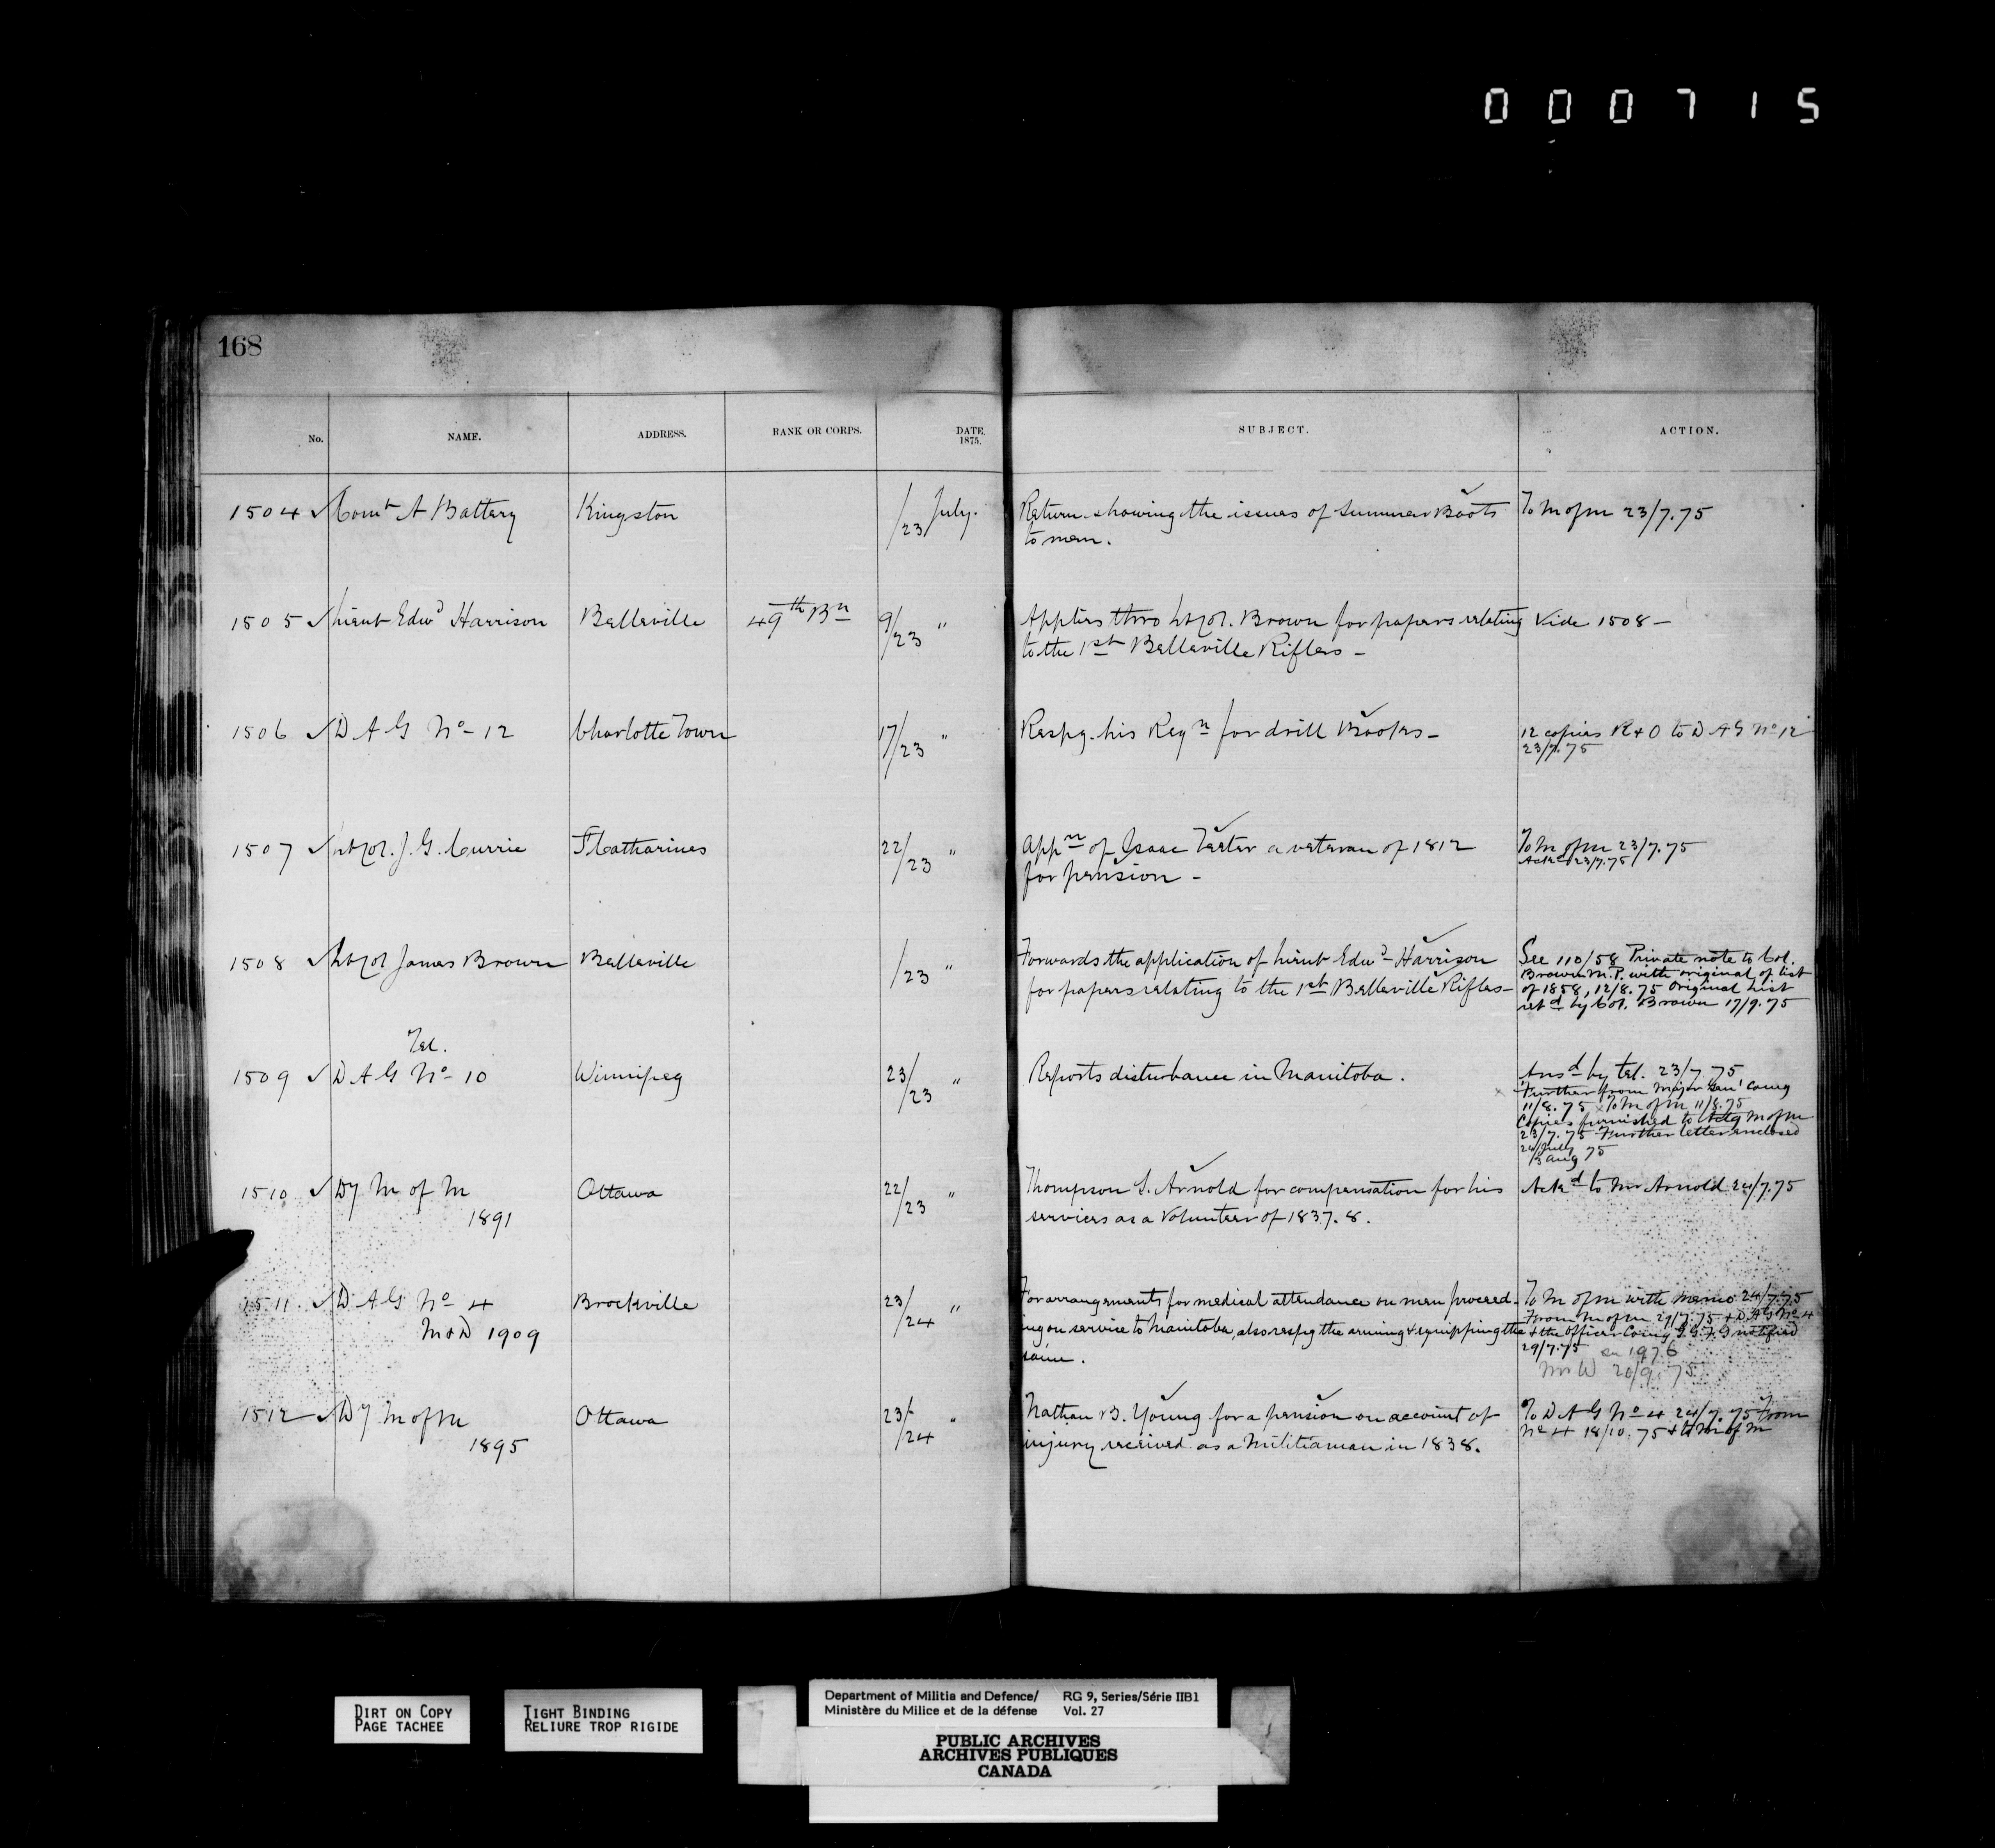 000715
168
No. NAME. ADDRESS. RANK OR CORPS. DATE. 1875. SUBJECT. ACTION.
1504 ✓ Comt A Battery Kingston /23 July. Return showing the issues of Summer Boots To M of M 23/7.75
to men.
1505 ✓ Lieut Edwd Harrison Belleville 49th Bn 9/23 " Applies thro Lt Col. Brown for papers relating Vide 1508 –
to the 1st Belleville Rifles –
1506 ✓ D A G No 12 Charlotte Town 17/23 " Respg. his Reqn for drill Books – 12 copies R & O to D A G No 12
23/7.75
1507 ✓ Lt Col. J. G. Currie St Catharines 22/23 " Appn of Isaac a veteran of 1812 To M of M 23/7.75
for pension – Ackd 23/7.75
1508 ✓ Lt Col James Brown Belleville /23 " Forwards the application of Lieut Edwd Harrison See 110/58 Private note to Col.
for papers relating to the 1st Belleville Rifles – Brown M.P. with original of list
of 1858, 12/8.75 Original List
retd by Col. Brown 17/9.75
Tel.
1509 ✓ D A G No 10 Winnipeg 23/23 " Reports disturbance in Manitoba. Ansd by tel. 23/7.75
Further from Major Genl Comg
11/8.75 × To M of M 11/8.75
Copies furnished to M of M
23/7.75 Further letter enclosed
24/July
3 Aug 75
1510 ✓ Dy M of M Ottawa 22/23 " Thompson S. Arnold for compensation for his Ackd to Mr Arnold 24/7.75
1891 services as a Volunteer of 1837.8.
1511 ✓ D A G No 4 Brockville 23/24 " For arrangements for medical attendance on men proceed- To M of M with memo 24/7.75
M & D 1909 ing on service to Manitoba, also respg the arming & equipping the From M of M 29/7.75 & D A G No 4
same. & the Officer Comg G.G.F.G notified
29/7.75 see 1976
Mr W 20/9.75
1512 ✓ Dy M of M Ottawa 23/24 " Nathan B. Young for a pension on account of To D A G No 4 24/7.75 From
1895 injury received as a Militiaman in 1838. No 4 18/10.75 & to M of M
DIRT ON COPY
PAGE TACHEE
TIGHT BINDING
RELIURE TROP RIGIDE
Department of Militia and Defence/ RG 9, Series/Série IIB1
Ministère du Milice et de la défense Vol. 27
PUBLIC ARCHIVES
ARCHIVES PUBLIQUES
CANADA